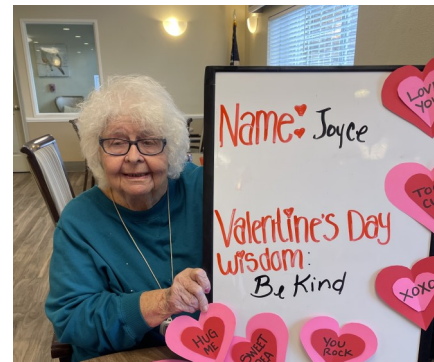 Name: Joyce
Valentine's Day
wisdom:
Be Kind
LOVE
YOU
XOXO
HUG
ME
SWEET
YOU
ROCK